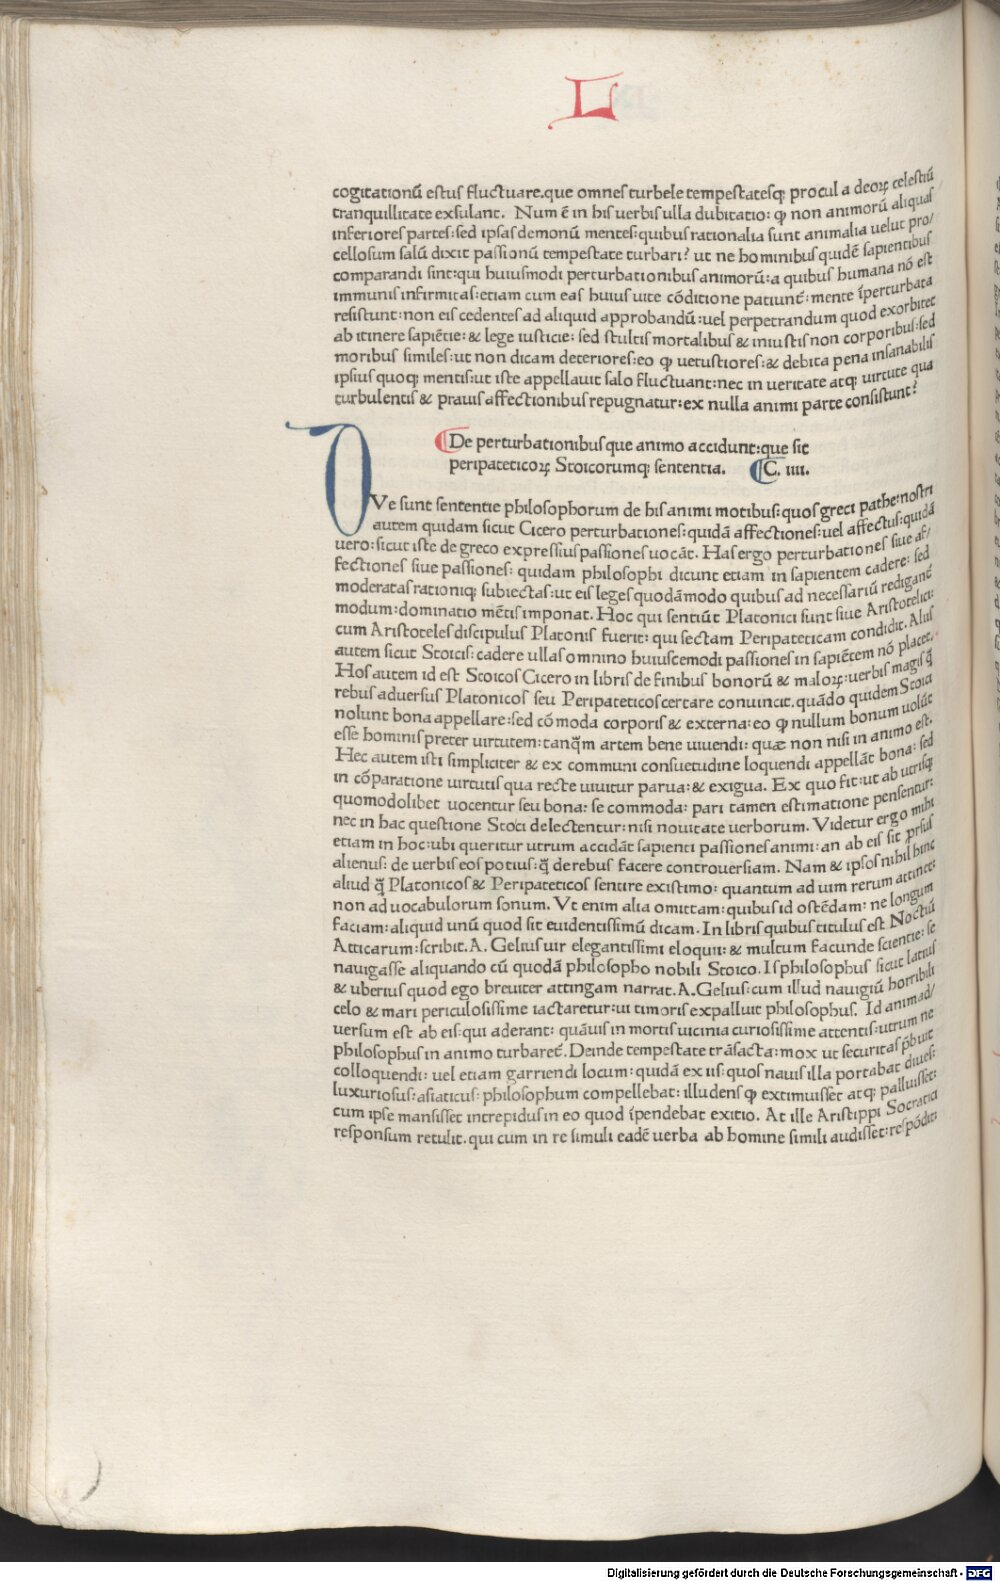 L
cogitationū estus fluctuare.que omnes turbele tempestatesqȝ procul a deoꝝ celestiū
tranquillitate exsulant. Num ē in his uerbis ulla dubitatio: ꝙ non animorū aliquas
inferiores partes: sed ipsas demonū mentes: quibus rationalia sunt animalia uelut pro/
cellosum salū dixit passionū tempestate turbari? ut ne hominibus quidē sapientibus
comparandi sint: qui huiusmodi perturbationibus animorū: a quibus humana nō est
immunis infirmitas: etiam cum eas huius uite cōditione patiunt̄: mente īperturbata
resistunt: non eis cedentes ad aliquid approbandū: uel perpetrandum quod exorbitet
ab itinere sapiētie: & lege iusticie: sed stultis mortalibus & iniustis non corporibus: sed
moribus similes: ut non dicam deteriores: eo ꝙ uetustiores: & debita pena insanabilis
ipsius quoqȝ mentis: ut iste appellauit salo fluctuant: nec in ueritate atqȝ uirtute qua
turbulentis & prauis affectionibus repugnatur: ex nulla animi parte consistunt?
De perturbationibus que animo accidunt: que sit
peripateticoꝝ Stoicorumqȝ sententia. C. iiii.
QVe sunt sententie philosophorum de his animi motibus: quos greci pathe: nostri
autem quidam sicut Cicero perturbationes: quidā affectiones: uel affectus: quidā
uero: sicut iste de greco expressius passiones uocāt. Has ergo perturbationes siue af/
fectiones siue passiones: quidam philosophi dicunt etiam in sapientem cadere: sed
moderatas rationiqȝ subiectas: ut eis leges quodāmodo quibus ad necessariū redigant̄
modum: dominatio mētis imponat. Hoc qui sentiūt Platonici sunt siue Aristotelici:
cum Aristoteles discipulus Platonis fuerit: qui sectam Peripateticam condidit. Aliis
autem sicut Stoicis: cadere ullas omnino huiuscemodi passiones in sapiētem nō placet.
Hos autem id est Stoicos Cicero in libris de finibus bonorū & maloꝝ: uerbis magis q̄
rebus aduersus Platonicos seu Peripateticos certare conuincit. quādo quidem Stoici
nolunt bona appellare: sed cōmoda corporis & externa: eo ꝙ nullum bonum uolūt
esse hominis preter uirtutem: tanq̄m artem bene uiuendi: quæ non nisi in animo est.
Hec autem isti simpliciter & ex communi consuetudine loquendi appellāt bona: sed
in cōparatione uirtutis qua recte uiuitur parua: & exigua. Ex quo fit: ut ab utrisqȝ
quomodolibet uocentur seu bona: se commoda: pari tamen estimatione pensentur:
nec in hac questione Stoci delectentur: nisi nouitate uerborum. Videtur ergo mihi
etiam in hoc: ubi queritur utrum accidāt sapienti passiones animi: an ab eis sit ꝓrsus
alienus: de uerbis eos potius: q̄ de rebus facere controuersiam. Nam & ipsos nihil hinc
aliud q̄ Platonicos & Peripateticos sentire existimo: quantum ad uim rerum attinet:
non ad uocabulorum sonum. Vt enim alia omittam: quibus id ostēdam: ne longum
faciam: aliquid unū quod sit euidentissimū dicam. In libris quibus titulus est Noctiū
Atticarum: scribit. A. Gelius uir elegantissimi eloquii: & multum facunde scientie: se
nauigasse aliquando cū quodā philosopho nobili Stoico. Is philosophus sicut latius
& uberius quod ego breuiter attingam narrat. A. Gelius: cum illud nauigiū horribili
celo & mari periculosissime iactaretur: ui timoris expalluit philosophus. Id animad/
uersum est ab eis: qui aderant: quāuis in mortis uicinia curiosissime attentis: utrum ne
philosophus in animo turbaret̄. Deinde tempestate trāsacta: mox ut securitas p̄buit
colloquendi: uel etiam garriendi locum: quidā ex iis: quos nauis illa portabat diues:
luxuriosus: asiaticus: philosophum compellebat: illudens ꝙ extimuisset atqȝ palluisset:
cum ipse mansisset intrepidus in eo quod īpendebat exitio. At ille Aristippi Socratici
responsum retulit. qui cum in re simili eadē uerba ab homine simili audisset: respōdit:
Digitalisierung gefördert durch die Deutsche Forschungsgemeinschaft - DFG